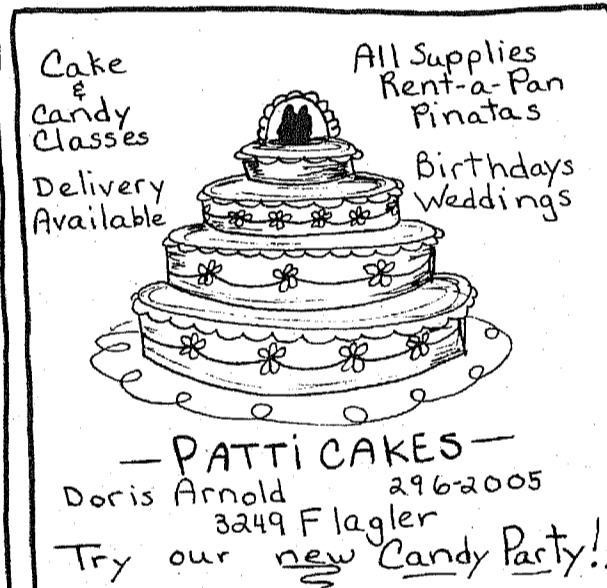 Cake
&
Candy
Classes
Delivery
Available
All Supplies
Rent-a-Pan
Pinatas
Birthdays
Weddings
— PATTi CAKES —
Doris Arnold 296-2005
3249 Flagler
Try our new Candy Party!